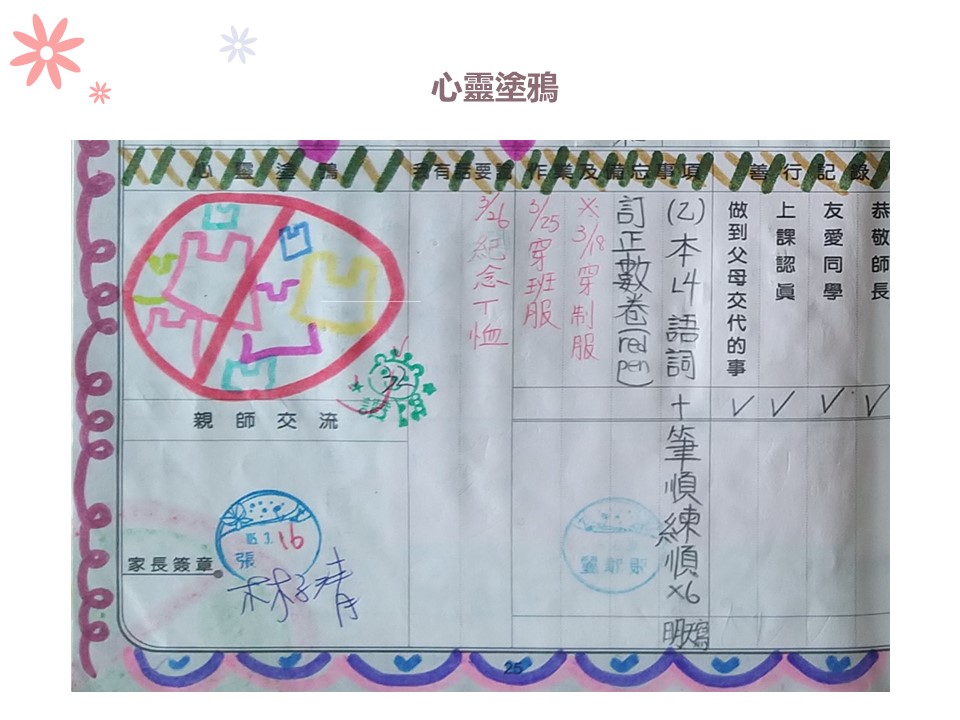 心靈塗鴉
心靈塗鴉
我有話要說
作業及備忘事項
善行記錄
恭敬師長
友愛同學
上課認真
做到父母交代的事
(乙)本L4語詞+筆順練順x6
訂正數卷(red pen)
※3/18穿制服
3/25穿班服
3/26紀念T恤
親師交流
家長簽章
3.16
張
25